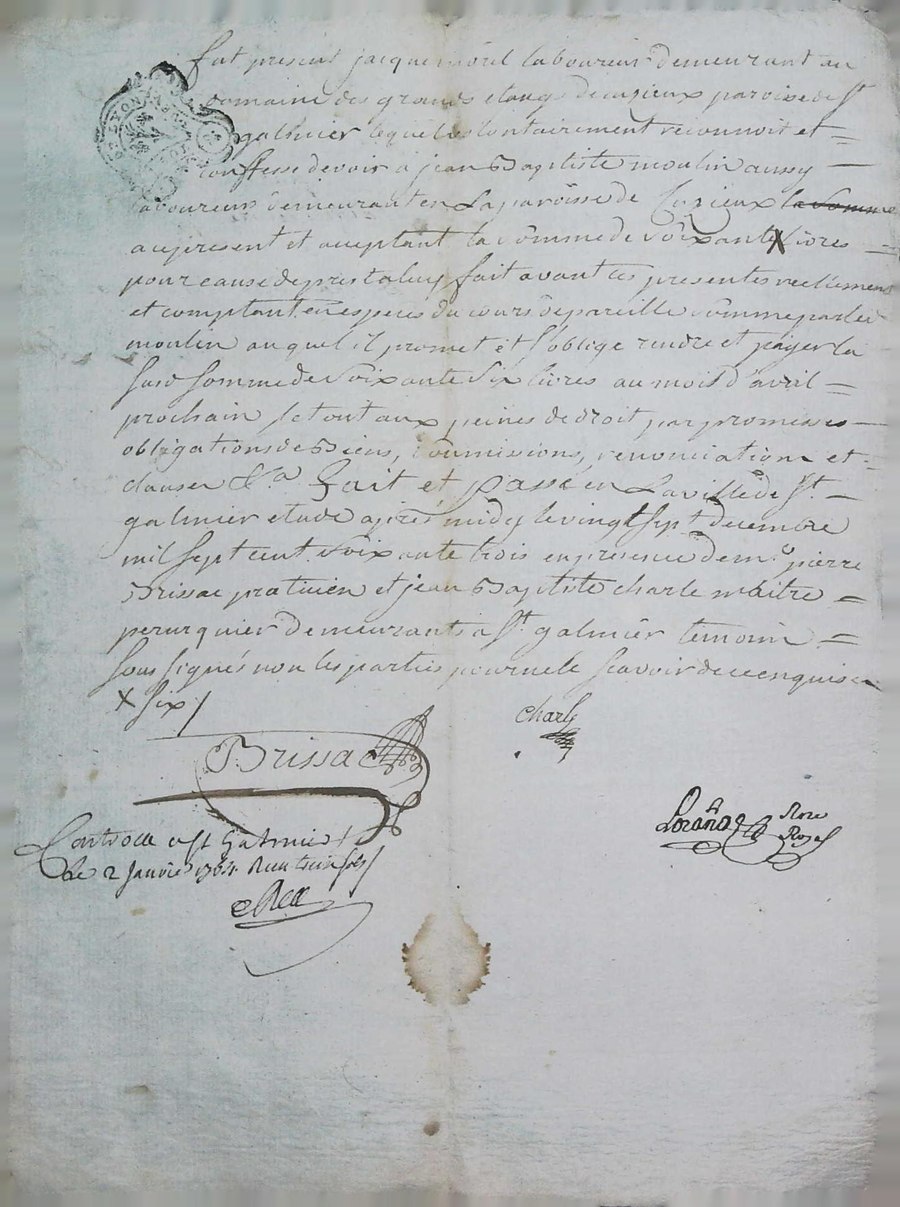 fut présent jacque morel laboureur demeurant au
domaine des grands etangs de cuzieux paroisse de St
galmier lequel volontairement reconnoit et =
confesse devoir a jean Baptiste moulin aussy
laboureur demeurant en la paroisse de Cuzieux la somme
au present et acceptant la somme de soixante X livres =
pour cause de prest a luy fait avant ces presentes reellement
et comptant en especes du cours de pareille somme par led
moulin auquel il promet et s'oblige rendre et payer la
susd somme de soixante six livres au mois d'avril =
prochain le tout aux peines de droit par promesses
obligations de Biens, soumissions, renonciations et
clauses &a fait et passé en la ville de St =
galmier etude apres midy le vingt sept decembre
mil sept cent soixante trois en presence de me pierre
Brissac praticien et jean Baptiste charle maitre =
peruquier demeurants a St galmier temoins =
sous signés non les parties pour ne le scavoir de ce enquises
X six /
charle
Brissac
Controllé a St Galmier
Le 2 Janvier 1764. Reçu treize sols
Rex
Nore
Royal
DE LYON